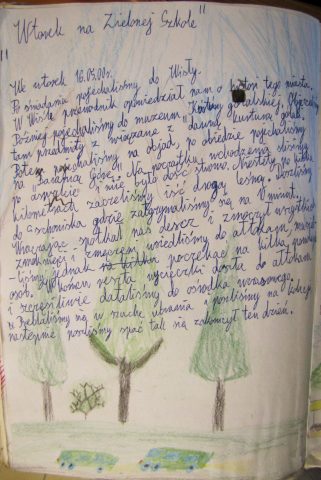 "Wtorek na Zielonej Szkole"
We wtorek 16.05.00r.
Po śniadaniu pojechaliśmy do Wisły.
W Wiśle przewodnik opowiedział nam o historii tego miasta.
Później pojechaliśmy do muzeum Kultury góralskiej. Obejrzeliśmy
tam przedmioty związane z dawną kulturą górali.
Potem pojechaliśmy na obiad, po obiedzie pojechaliśmy
na "Równicę Górę". Na początku wchodzenia szliśmy
po asfalcie i nie było dość równo. Niestety po kilku
kilometrach zaczęliśmy iść drogą leśną. Doszliśmy
do schroniska gdzie zatrzymaliśmy się na 5 minut.
Wracając spotkał nas deszcz i zmoczył wszystkich
zmoknięci i zmęczeni wsiedliśmy do autokaru, musie-
-liśmy jednak poczekać na kilka
osób. W końcu reszta wycieczki doszła do autokaru
i szczęśliwie dotarliśmy do ośrodka wczasowego.
Przebraliśmy się w suche ubrania i poszliśmy na kolację
następnie poszliśmy spać tak się zakończył ten dzień.